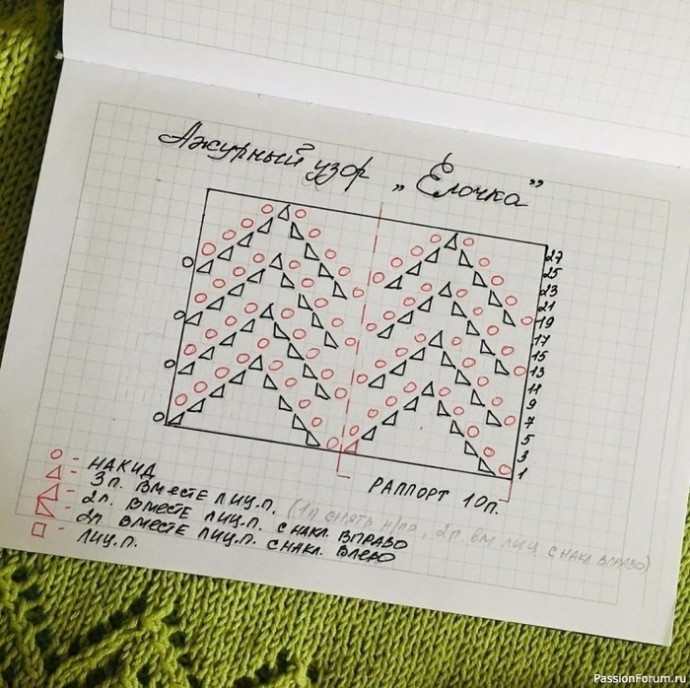 Ажурный узор „Ёлочка”
27
25
23
21
19
17
15
13
11
9
7
5
3
1
РАППОРТ 10п.
- НАКИД
- 3п. ВМЕСТЕ ЛИЦ.П. (1п снять н/ло, 2п. вм лиц с накл вправо)
- 2п. ВМЕСТЕ ЛИЦ.П. С НАКЛ. ВПРАВО
- 2п ВМЕСТЕ ЛИЦ.П. С НАКЛ. ВЛЕВО
- ЛИЦ.П.
PassionForum.ru